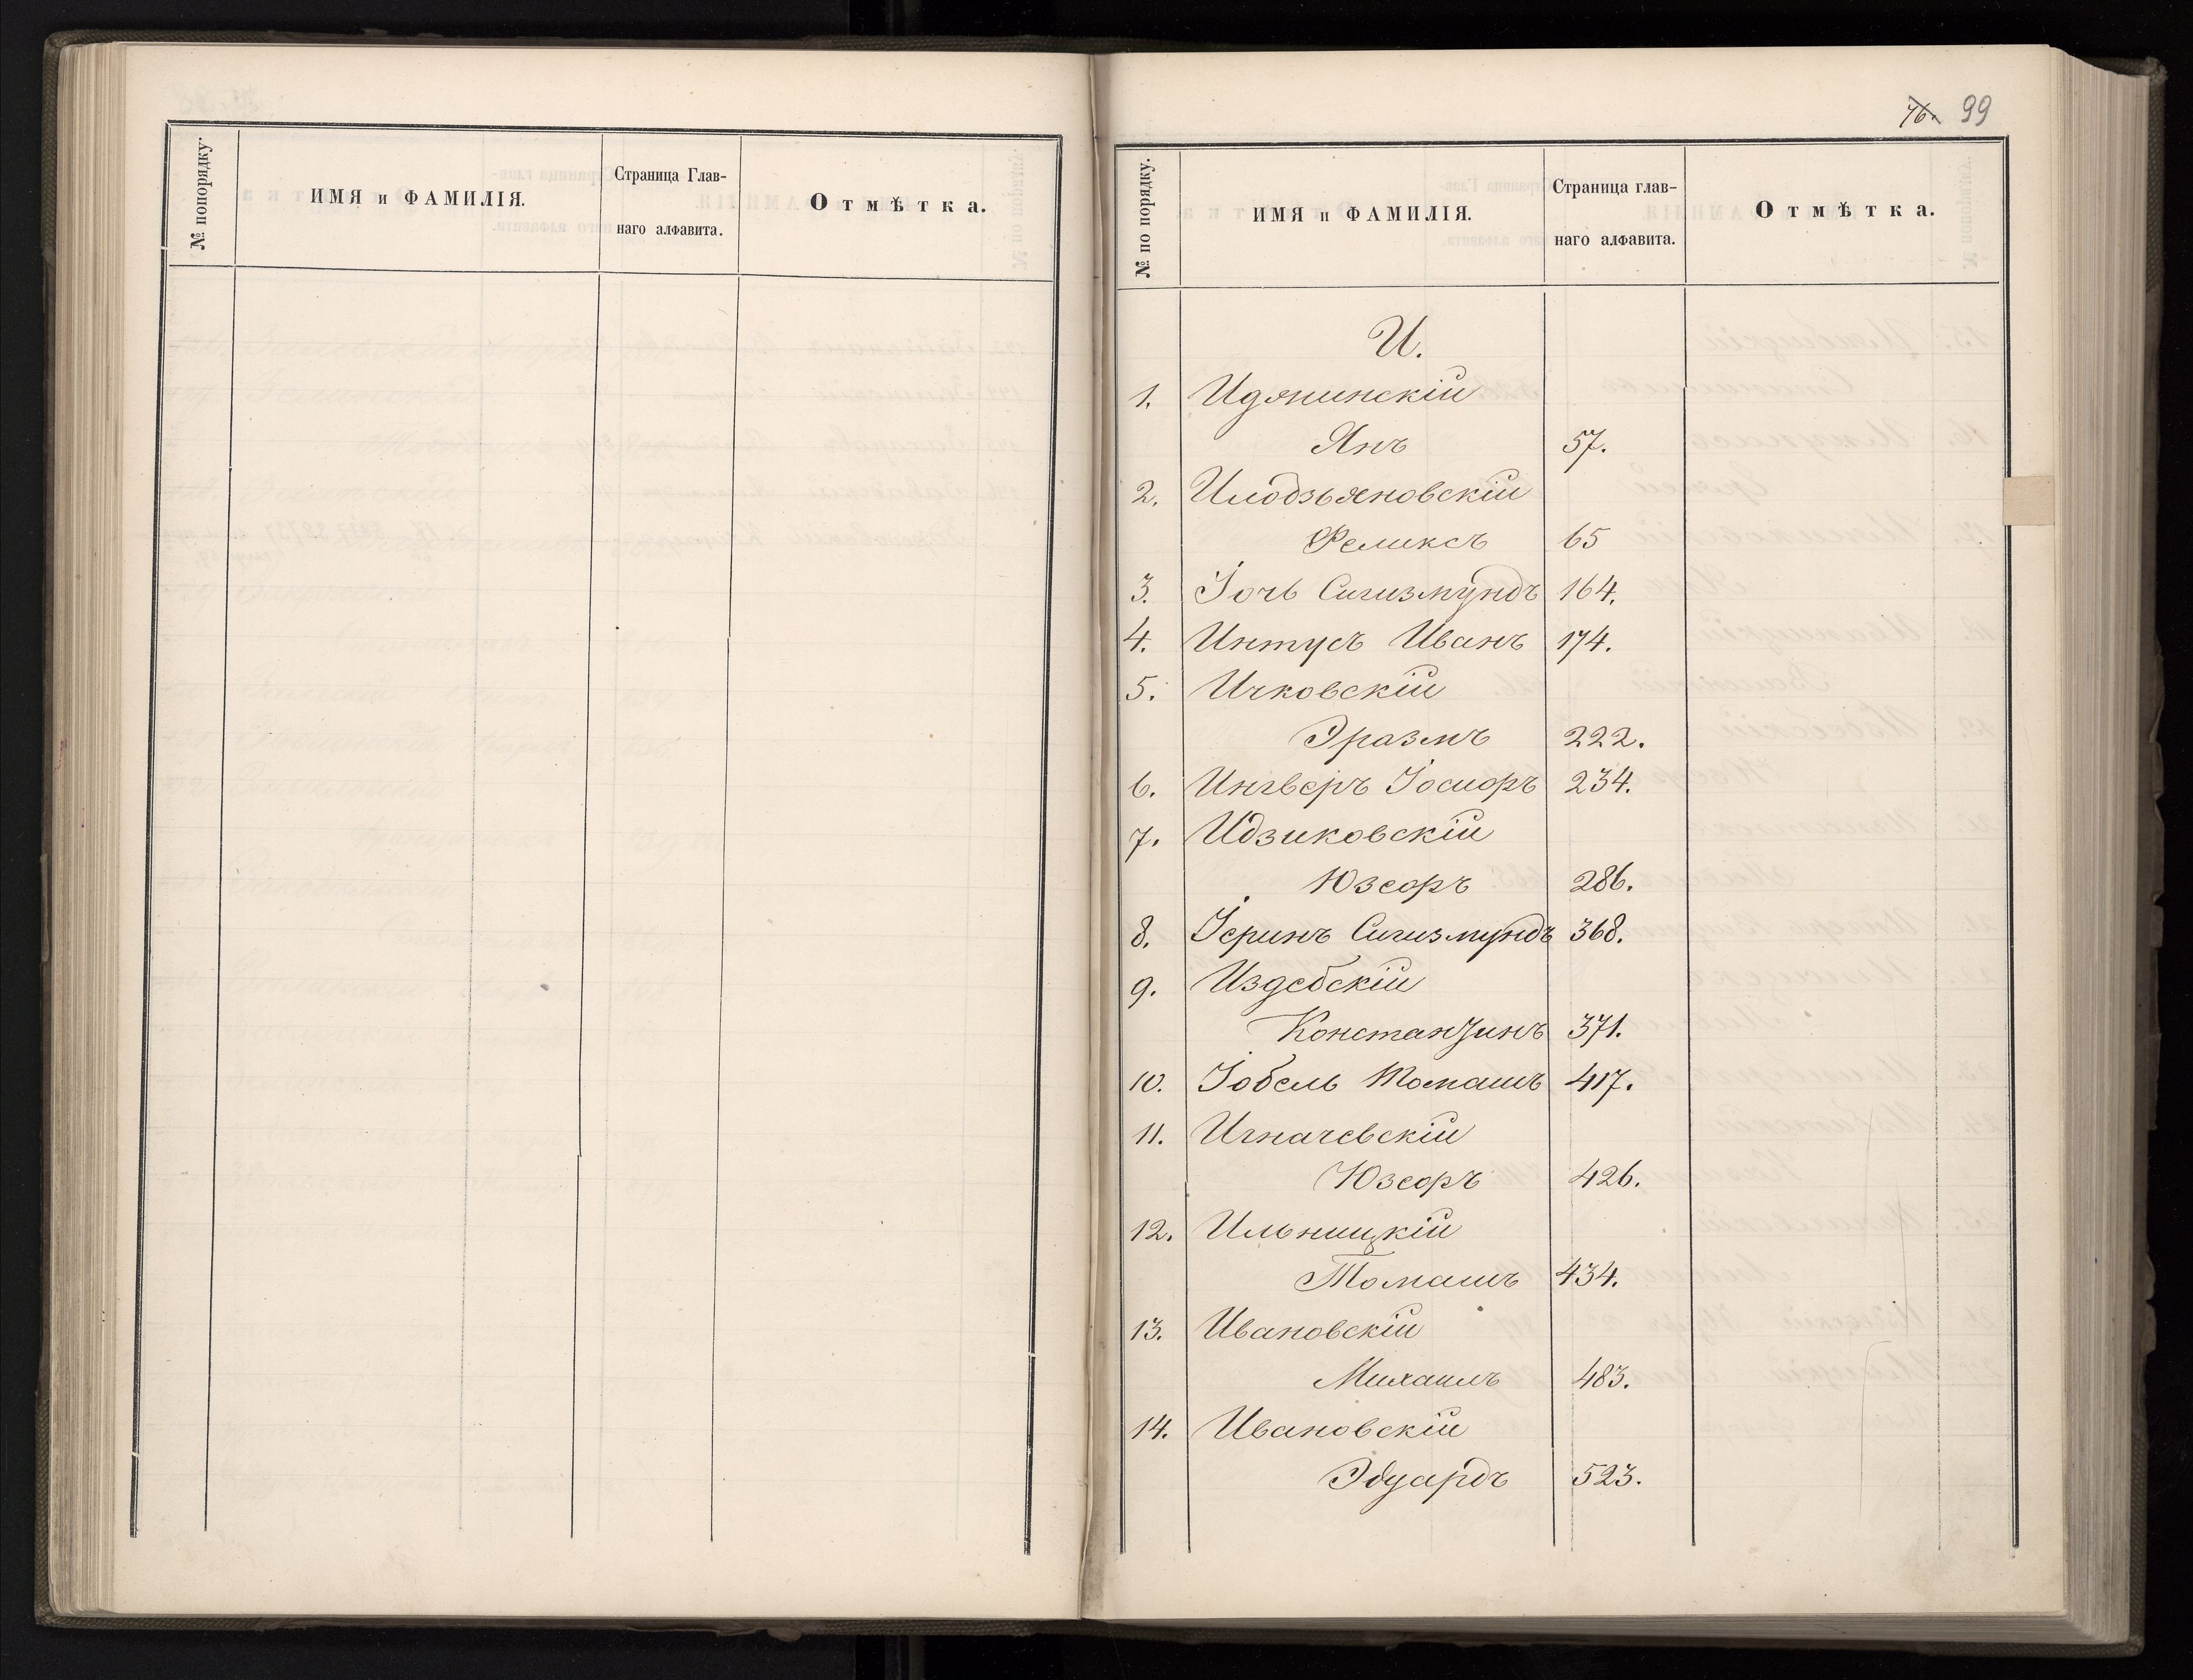 № попорядку.
ИМЯ и ФАМИЛІЯ.
Страница Глав-
наго алфавита.
Отмѣтка.
76. 99
№ по порядку.
ИМЯ и ФАМИЛІЯ.
Страница глав-
наго алфавита.
Отмѣтка.
И.
1. Идянинскій
Янъ 57.
2. Илодзьяновскій
Феликсъ 65
3. Іочь Сигизмундъ 164.
4. Интусъ Иванъ 174.
5. Ичковскій
Эразмъ 222.
6. Ингверъ Іосифъ 234.
7. Идзиковскій
Юзефъ 286.
8. Іеринъ Сигизмундъ 368.
9. Издебскій
Константинъ 371.
10. Іобель Томашъ 417.
11. Игначевскій
Юзефъ 426.
12. Ильницкій
Томашъ 434.
13. Ивановскій
Михаилъ 483.
14. Ивановскій
Эдуардъ 523.